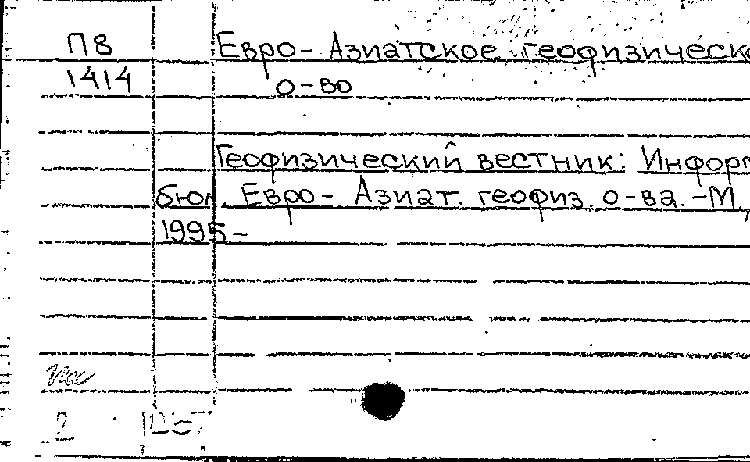 П8 Евро-Азиатское геофизическ
1414 о-во
Геофизический вестник: Информ
бюл. Евро-Азиат. геофиз. о-ва. -М.,
1995-
2